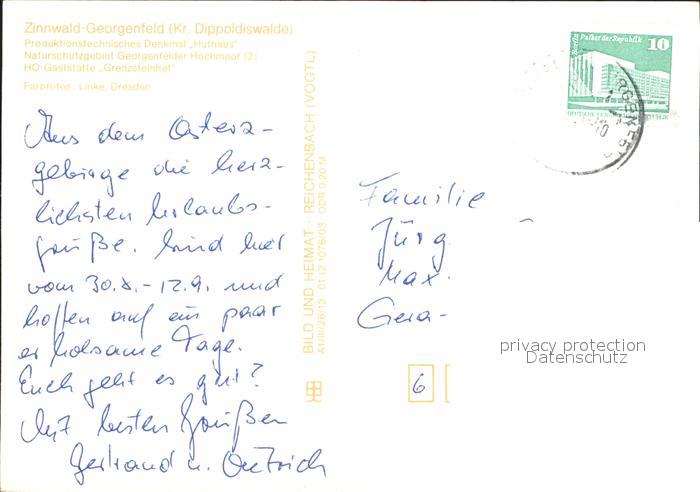 Zinnwald-Georgenfeld (Kr. Dippoldiswalde)
Produktionstechnisches Denkmal „Huthaus"
Naturschutzgebiet Georgenfelder Hochmoor (2)
HO-Gaststätte „Grenzsteinhof"
Farbfotos: Linke, Dresden
Aus dem Osterz-
gebirge die herz-
lichsten Urlaubs-
grüße. Sind hier
vom 30.8.-12.9. und
hoffen auf ein paar
erholsame Tage.
Euch geht es gut?
Mit besten Grüßen
Gertraud u.
BILD UND HEIMAT · REICHENBACH (VOGTL)
A1/III/26/13 01 12 1076/03 DDR 0,20 M
Berlin Palast der Republik
10
Familie
Jürg
Max.
Gera-
6
privacy protection
Datenschutz